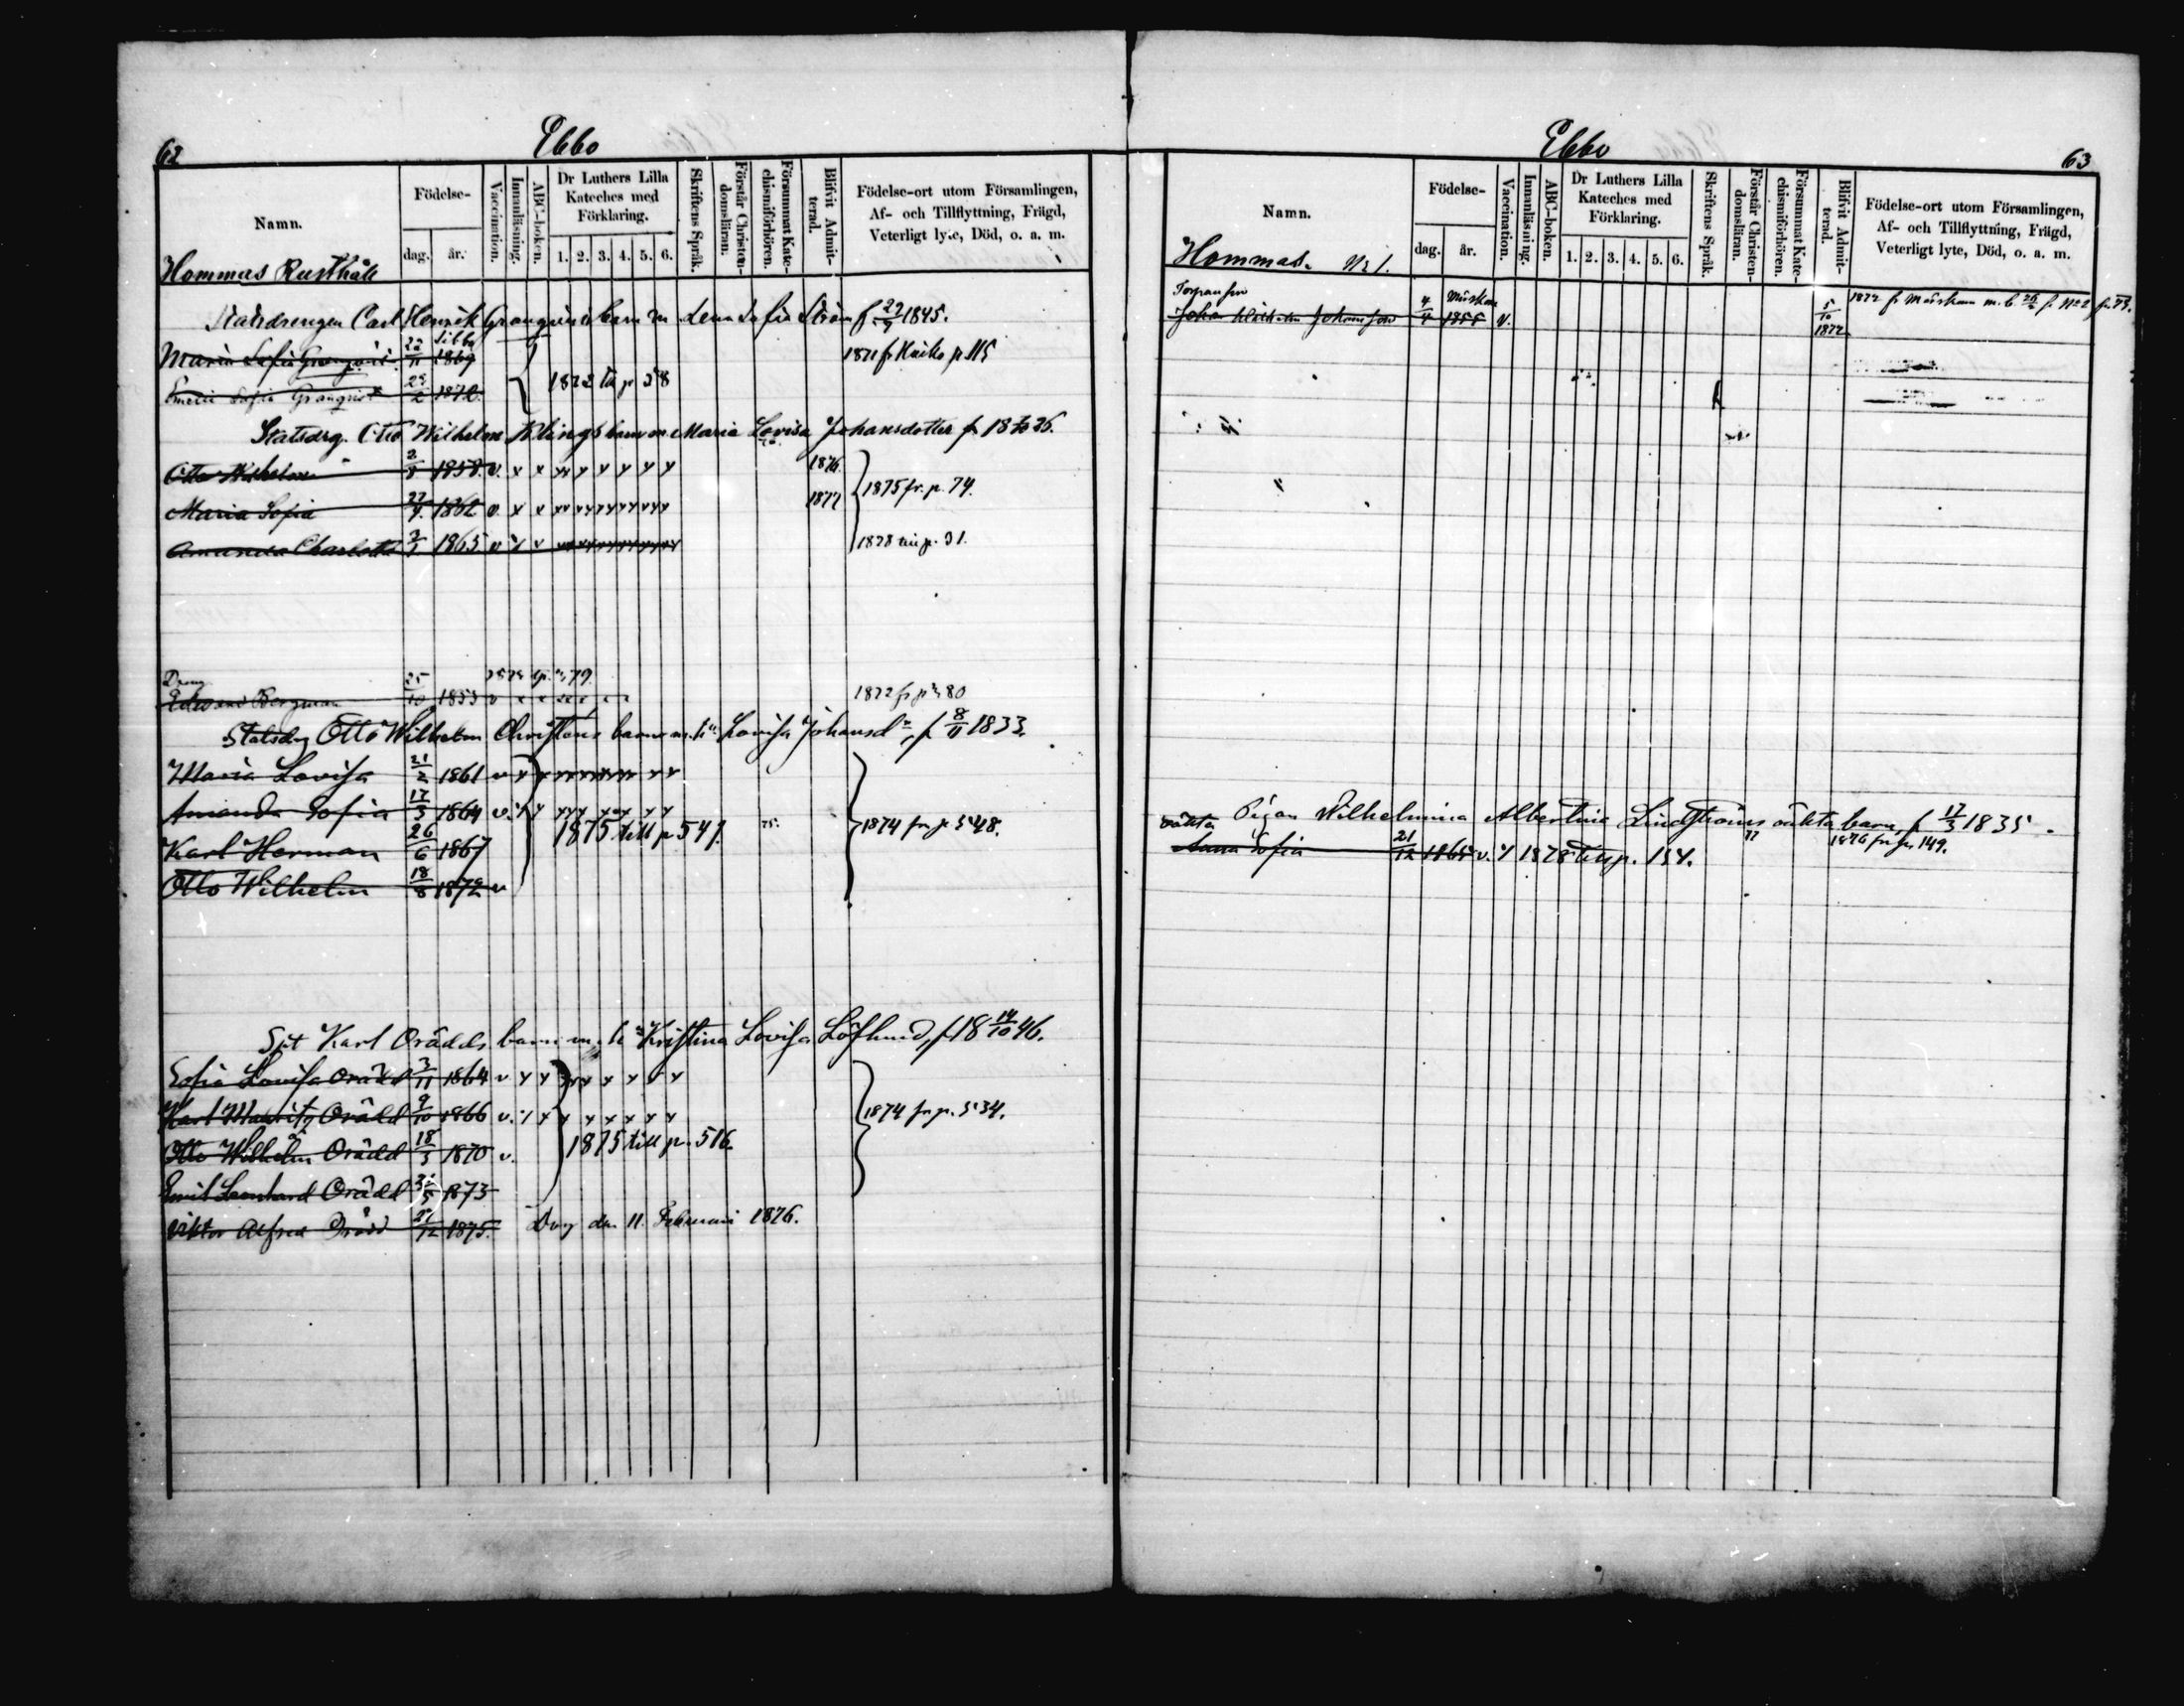 62
Ebbo
Namn.
Födelse-
dag.
år.
Vaccination.
Innanläsning.
ABC-boken.
Dr Luthers Lilla
Kateches med
Förklaring.
1. 2. 3. 4. 5. 6.
Skriftens Språk.
Förstår Christen-
domsläran.
Försummat Kate-
chismiförhören.
Blifvit Admit-
terad.
Födelse-ort utom Församlingen,
Af- och Tillflyttning, Frägd,
Veterligt lyte, Död, o. a. m.
Hommas Rusthåll
Statsdrengen Carl Henrik Granqvists barn m Lena Sofia Ström f 1845.
Sibbo
Maria Sofia Granqvist 22/11 1869 1871 fr p 115
Emelie Sofia Granqvist 1872.
1872 till p 58
Statsdrg. Otto Wilhelm Klings barn m Maria Lovisa Johansdotter f. 36.
Otto Wilhelm 2/8 1858. v. x x xx x x x x x 1876.
1875 fr. p. 74.
Maria Sofia 27/4 1862 v x x 1877
Amanda Charlotta 1865 v x v 1878 till p. 31.
Dreng
Edvard Bergman 25/10 1853 v 1872 fr p 80
Statsdrg Otto Wilhelm Christens barn m. h. Lovisa Johansd:r, f 8/11 1833.
Maria Lovisa 21/2 1861 v x x
Amanda Sofia 17/3 1864 v. x x
1875 till p 547. 75. 1874 fr p 548.
Karl Herman 26/6 1867
Otto Wilhelm 18/8 1872 v
Spt Karl Orädds barn m. h. Kristina Lovisa Löflund, f 18 14/10 46.
Sofia Lovisa Orädd 3/11 1864 v x x
Karl Mauritz Orädd 9/10 1866 v. x x x x x x x x 1874 fr p. 534.
Otto Wilhelm Orädd 18/3 1870 v. 1875 till p. 516.
Emil Leonhard Orädd 1873
Viktor Alfred Orädd 1875. Dog den 11 Februari 1876.
63
Ebbo
Namn.
Födelse-
dag.
år.
Vaccination.
Innanläsning.
ABC-boken.
Dr Luthers Lilla
Kateches med
Förklaring.
1. 2. 3. 4. 5. 6.
Skriftens Språk.
Förstår Christen-
domsläran.
Försummat Kate-
chismiförhören.
Blifvit Admit-
terad.
Födelse-ort utom Församlingen,
Af- och Tillflyttning, Frägd,
Veterligt lyte, Död, o. a. m.
Hommas. No 1.
Johan Wilhelm Johansson 4/4 1855 v. 5/10 1872
Pigan Wilhelmina Albertina Lindströms oäkta barn, f 17/3 1835.
oäkta
Anna Sofia 21/12 1865 v. x 1878 till p. 154. 77 1876 fr p. 149.